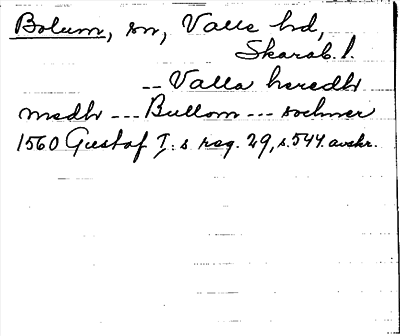 Bolum, sn, Valle hd,
Skarab. l.
-- Valla heredh
medh --- Bullom --- sochner
1560 Gustaf I:s reg. 29, s. 544. avskr.